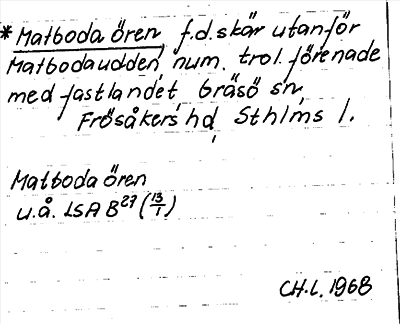 *Matboda ören, f.d. skär utanför
Matbodaudden, num. trol. förenade
med fastlandet Gräsö sn,
Frösåkers hd, Sthlms l.
Matboda ören
u.å. LSA B27 (13/1)
CH.L. 1968